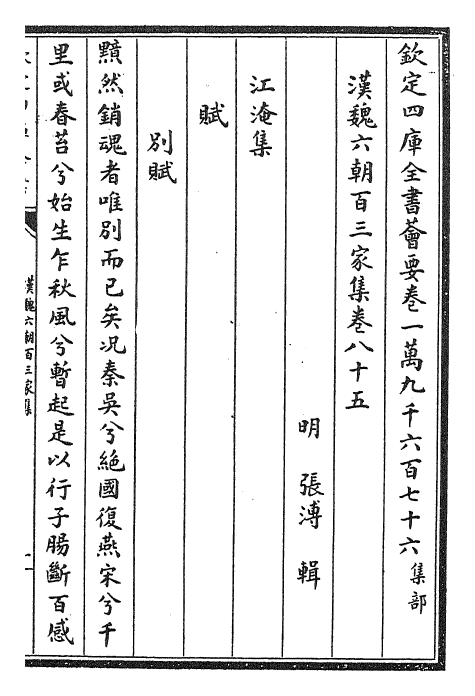 欽定四庫全書薈要卷一萬九千六百七十六集部
漢魏六朝百三家集卷八十五
明 張溥 輯
江淹集
賦
別賦
黯然銷魂者唯別而已矣况秦吳兮絶國復燕宋兮千
里或春苔兮始生乍秋風兮暫起是以行子腸斷百感
漢魏六朝百三家集